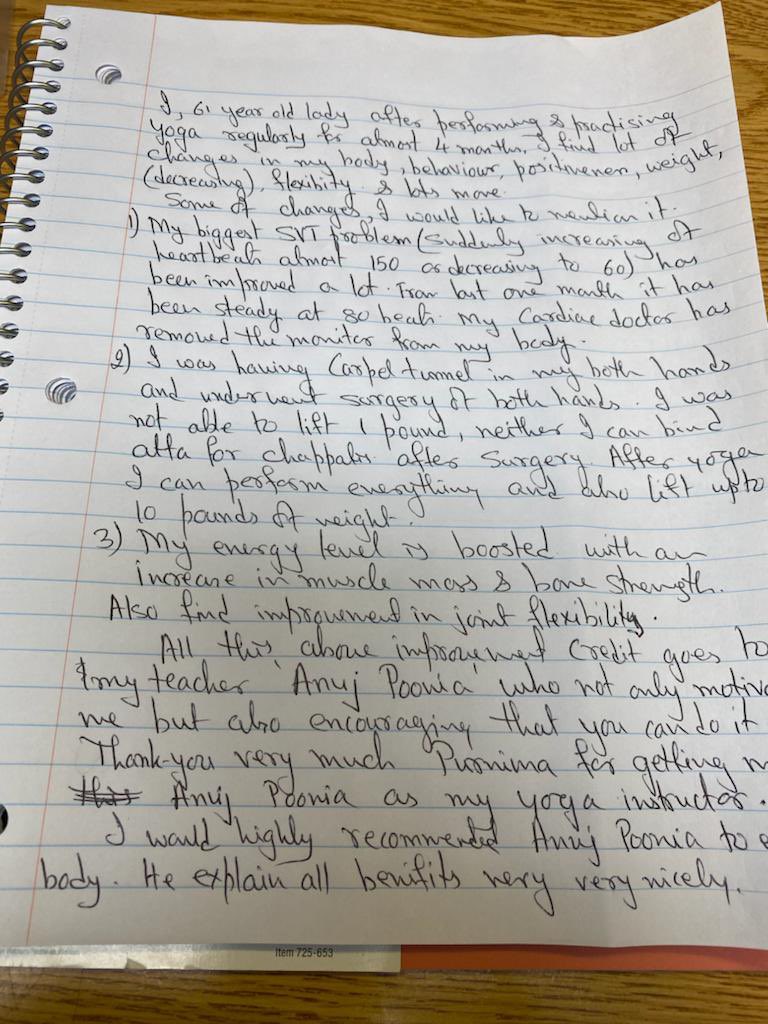 I, 61 year old lady after performing & practising
yoga regularly for almost 4 months, I find lot of
changes in my body, behaviour, positiveness, weight,
(decreasing), flexibity & lots more.
Some of changes, I would like to mention it.
1) My biggest SVT problem (Suddenly increasing of
heartbeats almost 150 or decreasing to 60) has
been improved a lot. From last one month it has
been steady at 80 beats. My Cardiac doctor has
removed the monitor from my body.
2) I was having Carpel tunnel in my both hands
and underwent surgery of both hands. I was
not able to lift 1 pound, neither I can bind
atta for chappatis after surgery. After yoga
I can perform everything and also lift upto
10 pounds of weight.
3) My energy level is boosted with an
increase in muscle mass & bone strength.
Also find improvement in joint flexibility.
All this above improvement credit goes to
my teacher 'Anuj Poonia' who not only motiva
me but also encouraging that you can do it
Thank-you very much Purnima for getting m
Anuj Poonia as my yoga instructor.
I would highly recommended Anuj Poonia to e
body. He explain all benifits very very nicely.
Item 725-653